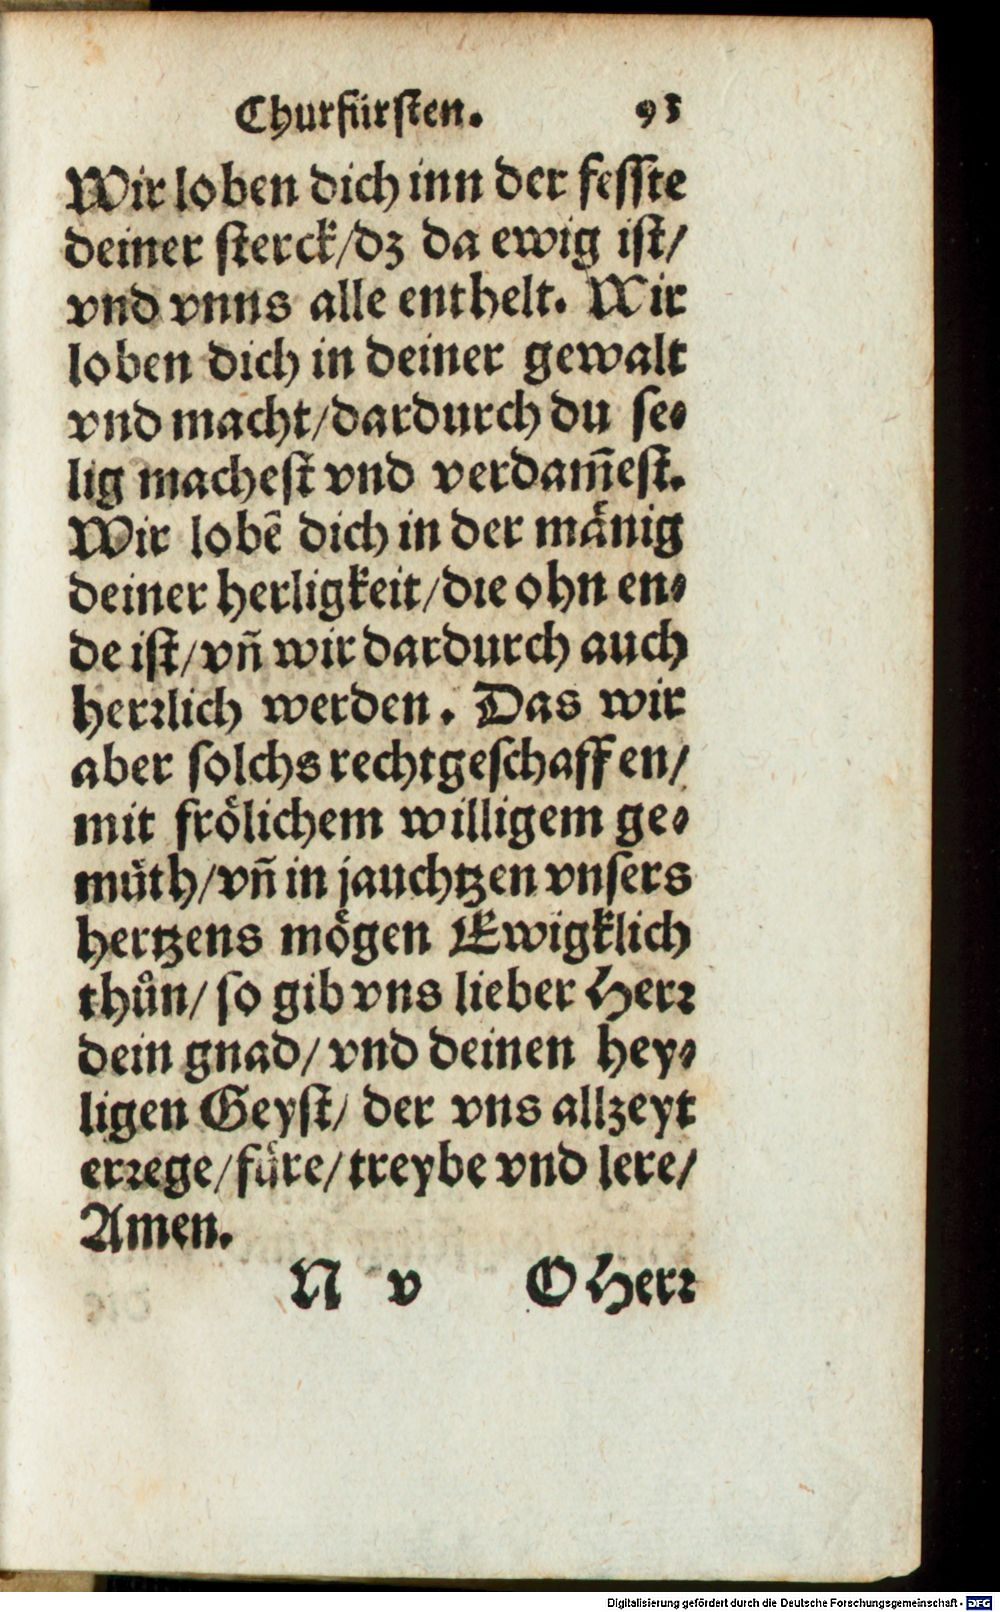 Churfürsten. 93
Wir loben dich inn der fesste
deiner sterck/dz da ewig ist/
vnd vnns alle enthelt. Wir
loben dich in deiner gewalt
vnd macht/dardurch du se-
lig machest vnd verdam̄est.
Wir lobē dich in der mänig
deiner herligkeit/die ohn en-
de ist/vn̄ wir dardurch auch
herrlich werden. Das wir
aber solchs rechtgeschaffen/
mit frölichem willigem ge-
müth/vn̄ in jauchtzen vnsers
hertzens mögen Ewigklich
thůn/ so gib vns lieber Herr
dein gnad/ vnd deinen hey-
ligen Geyst/ der vns allzeyt
errege/füre/treybe vnd lere/
Amen.
N v O Herr
Digitalisierung gefördert durch die Deutsche Forschungsgemeinschaft - DFG